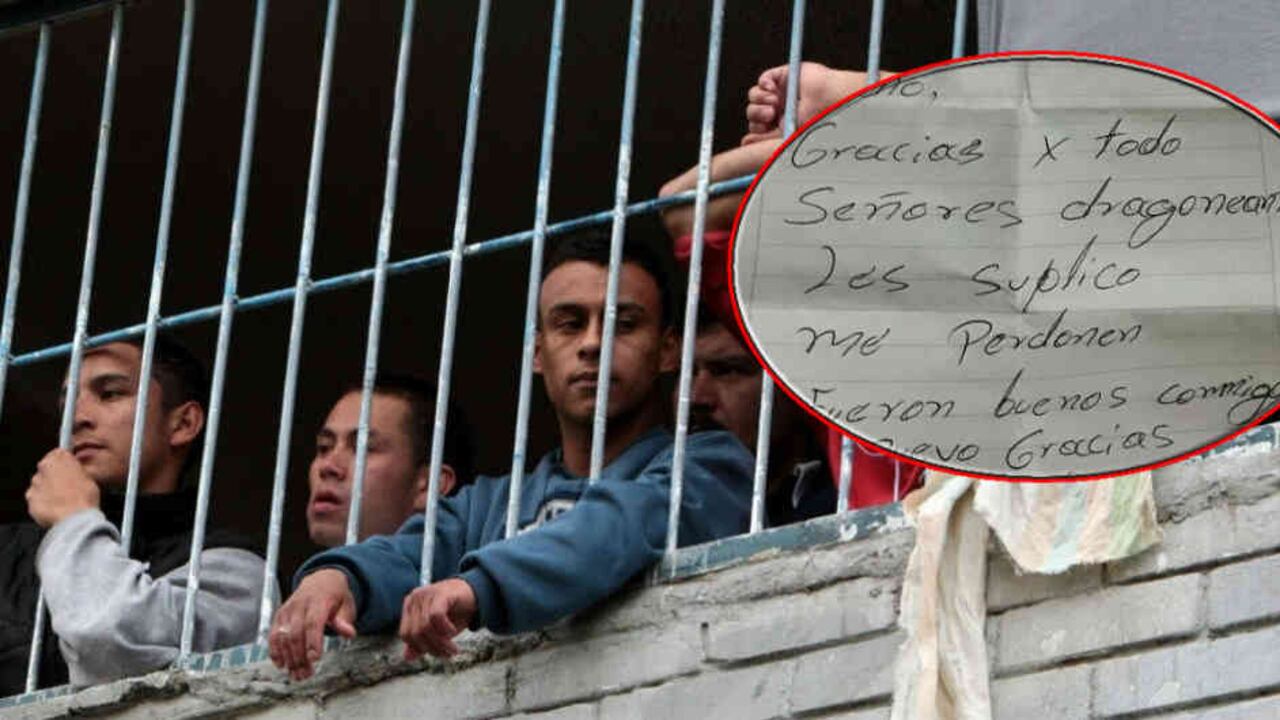 Gracias x todo
Señores dragonean
Les suplico
me Perdonen
Fueron buenos commigo
Gracias